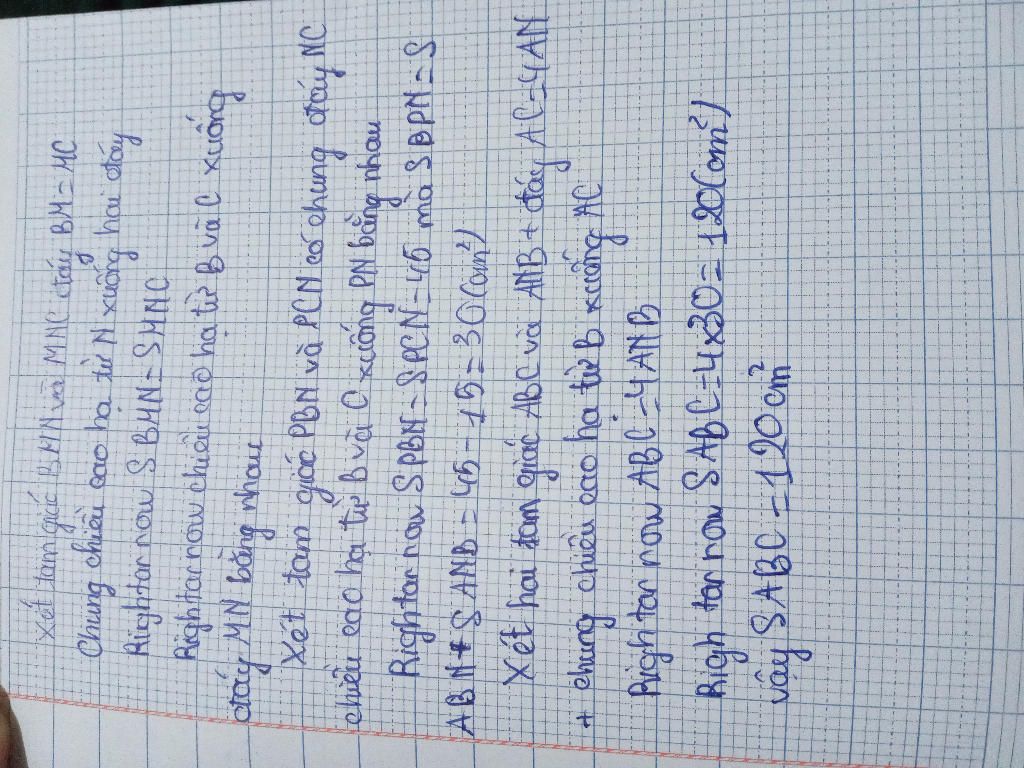 Xét tam giác BMN và MNC đáy BM=MC
Chung chiều cao hạ từ N xuống hai đáy
Rightarrow S BMN = SMNC
Rightarrow chiều cao hạ từ B và C xuống
đáy MN bằng nhau
Xét tam giác PBN và PCN có chung đáy NC
chiều cao hạ từ B và C xuống PN bằng nhau
Rightarrow SPBN = SPCN = 45 mà SBPN = S
ABN + S ANB = 45 - 15 = 30 (cm²)
Xét hai tam giác ABC và ANB + đáy AC = 4AN
+ chung chiều cao hạ từ B xuống AC
Rightarrow ABC = 4ANB
Righ tarrow SABC = 4x30 = 120 (cm²)
vậy SABC = 120 cm²